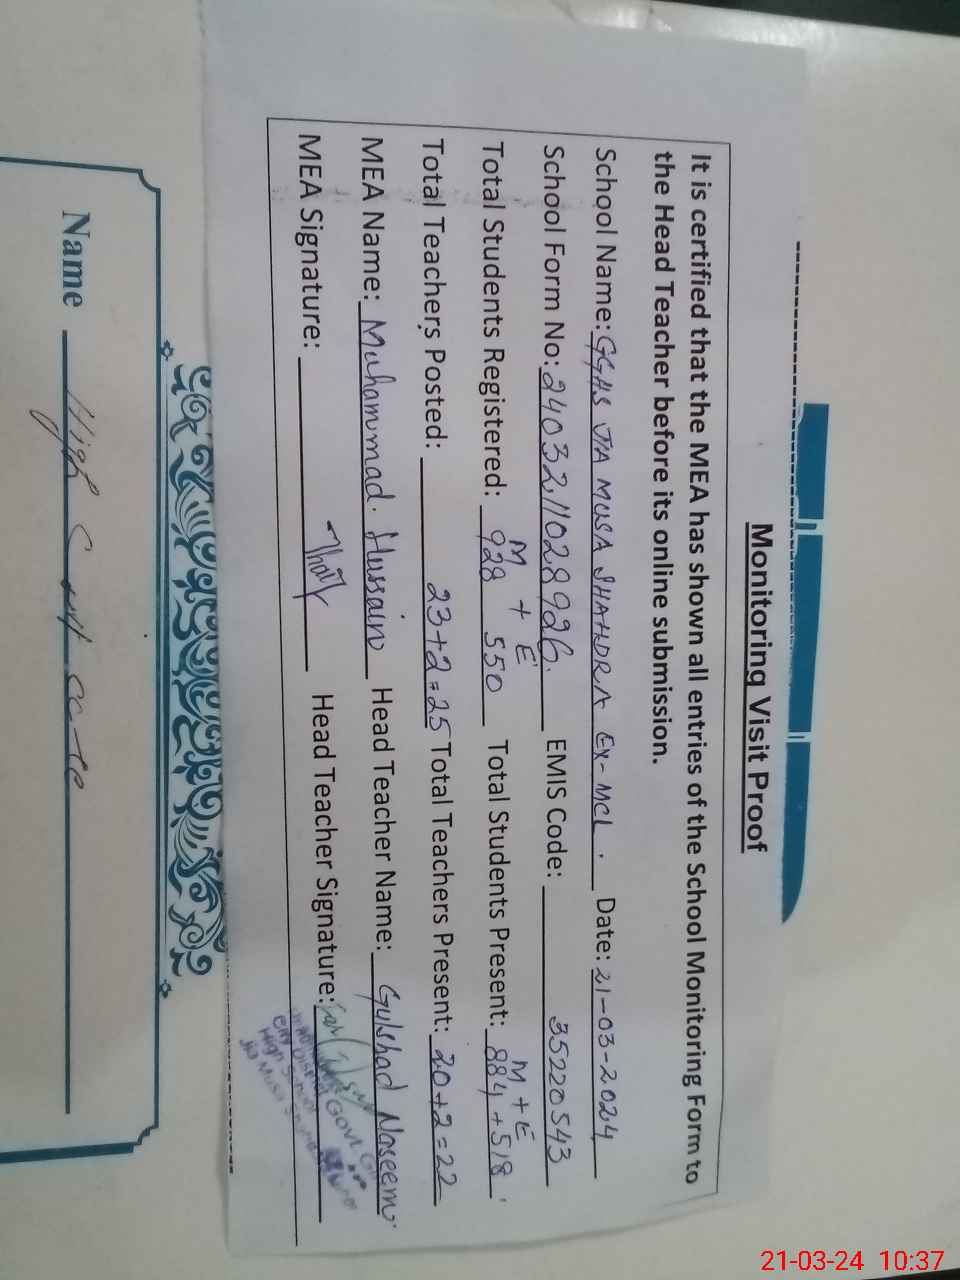 Monitoring Visit Proof
It is certified that the MEA has shown all entries of the School Monitoring Form to
the Head Teacher before its online submission.
School Name: GGHS JIA MUSA SHAHDRA EX-MCL. Date: 21-03-2024
School Form No: 2403211028926. EMIS Code: 35220543
M + E M + E
Total Students Registered: 928 550 Total Students Present: 884 + 518
Total Teachers Posted: 23+2=25 Total Teachers Present: 20+2=22
MEA Name: Muhammad Hussain Head Teacher Name: Gulshad Naseem
MEA Signature: Head Teacher Signature:
City District Govt. Girls
High School
Jia Musa
Name High
21-03-24 10:37